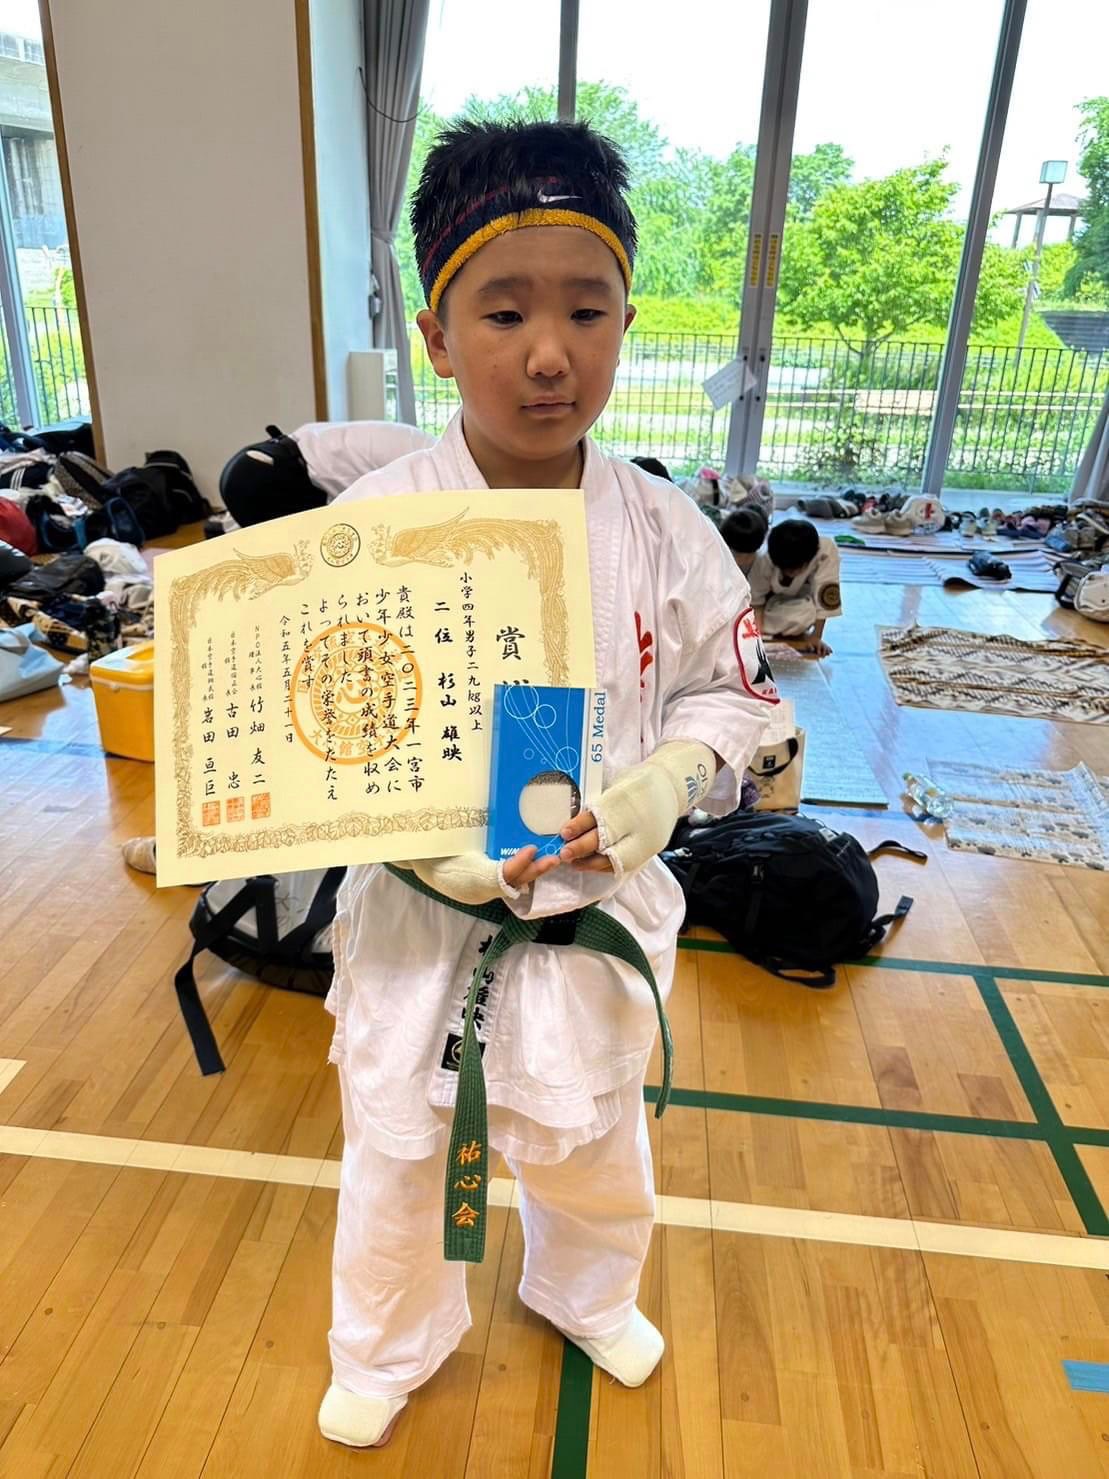 賞
小学四年男子二九kg以上
二位 杉山 雄映
貴殿は二〇二三年一宮市
少年少女空手道大会に
おいて頭書の成績を収め
られました
よってその栄誉をたたえ
これを賞す
令和五年五月二十日
NPO法人大心館
理事長 竹畑 友二
日本空手道佑正会
館長 古田 忠
館長 岩田 亘巨
65 Medal
WIN
山雄映
祐心会